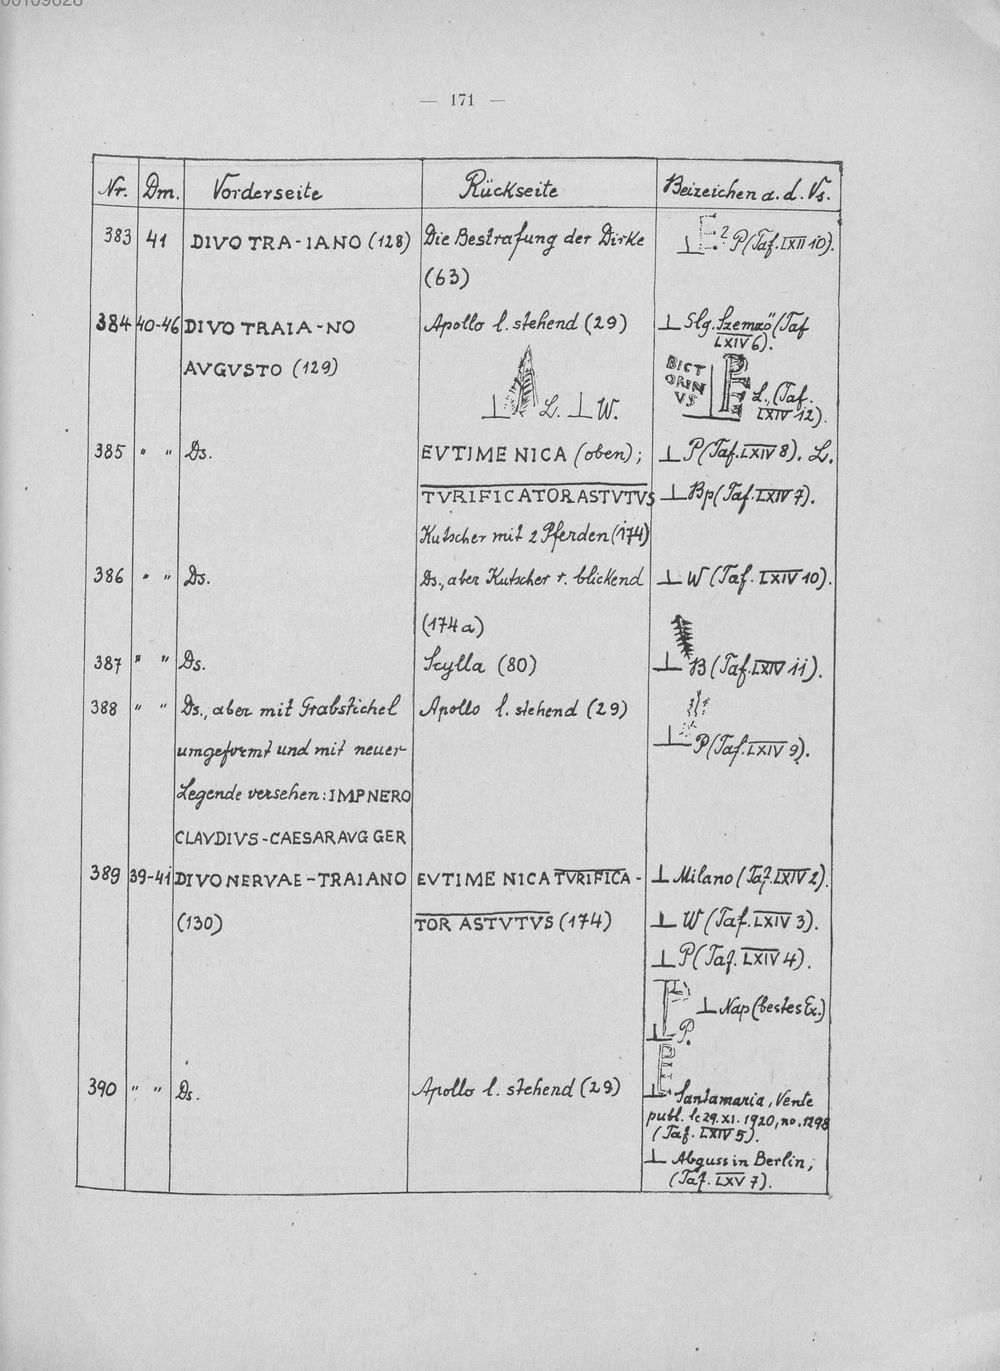 00109828
— 171 —
Nr. Dm. Vorderseite Rückseite Beizeichen a. d. Vs.
383 41 DIVO TRA-IANO (128) Die Bestrafung der Dirke P (Taf. LXII 10).
(63)
384 40-46 DIVO TRAIA-NO Apollo l. stehend (29) ⊥ Slg. Szemző (Taf
LXIV 6).
AVGVSTO (129) ⊥ L. ⊥ W.
BICT
ORIN
VS
PE L., (Taf.
LXIV 12).
385 " " Ds. EVTIME NICA (oben); ⊥ P (Taf. LXIV 8). L.
TVRIFICATOR ASTVTVS ⊥ Bp (Taf. LXIV 7).
Kutscher mit 2 Pferden (174)
386 " " Ds. Ds., aber Kutscher r. blickend ⊥ W (Taf. LXIV 10).
(174a)
387 " " Ds. Scylla (80) ⊥ B (Taf. LXIV 11).
388 " " Ds., aber mit Grabstichel Apollo l. stehend (29)
umgeformt und mit neuer ⊥ P (Taf. LXIV 9).
Legende versehen: IMP NERO
CLAVDIVS-CAESAR AVG GER
389 39-41 DIVO NERVAE-TRAIANO EVTIME NICA TVRIFICA- ⊥ Milano (Taf. LXIV 2).
(130) TOR ASTVTVS (174) ⊥ W (Taf. LXIV 3).
⊥ P (Taf. LXIV 4).
⊥ Nap (bestes Ex.)
P.
390 " " Ds. Apollo l. stehend (29) PE ⊥ Santamaria, Vente
publ. le 29. XI. 1920, no. 1298
(Taf. LXIV 5).
⊥ Abguss in Berlin,
(Taf. LXV 7).